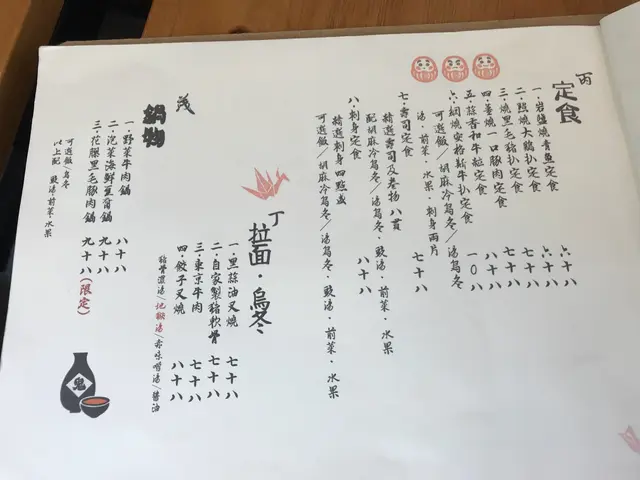 丙
定食
一．岩鹽燒青魚定食 六十八
二．照燒大鷄扒定食 六十八
三．燒黑毛豬扒定食 七十八
四．薑燒一口豚肉定食 七十八
五．蒜香和牛粒定食 一〇八
六．網燒安格斯牛扒定食
可選飯／胡麻冷烏冬／湯烏冬
湯．前菜．水果．刺身両片
七．壽司定食 七十八
精選壽司及卷物八貫
配胡麻冷烏冬／湯烏冬．豉湯．前菜．水果
八．刺身定食 八十八
精選刺身四點盛
可選飯／胡麻冷烏冬／湯烏冬．豉湯．前菜．水果
丁
拉面．烏冬
一．黑蒜油叉燒 七十八
二．自家製豬軟骨 七十八
三．東京牛肉 七十八
四．餃子叉燒 八十八
豬骨濃湯／地獄湯／赤味噌湯／醬油
戊
鍋物
一．野菜牛肉鍋 八十八
二．泡菜海鮮豆腐鍋 九十八
三．花膠黑毛豚肉鍋 九十八（限定）
可選飯／烏冬
以上配 豉湯．前菜．水果
鬼